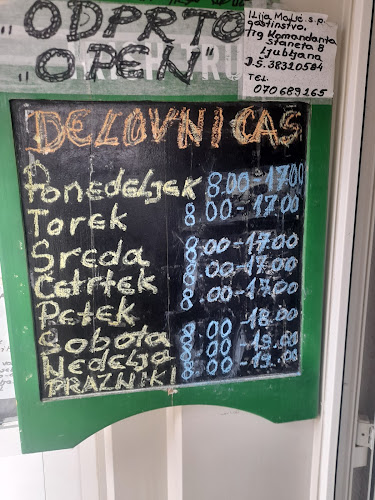 "ODPRTO
"OPEN"
Ilija Mojić s.p.
gostinstvo,
Trg Komandanta
Staneta 8
Ljubljana
D.Š. 38320504
TEL.
070 689 265
DELOVNI ČAS
Ponedeljek 8.00-17.00
Torek 8.00-17.00
Sreda 8.00-17.00
Četrtek 8.00-17.00
Petek 8.00-17.00
Sobota 8.00-16.00
Nedelja 8.00-13.00
PRAZNIKI 8.00-13.00